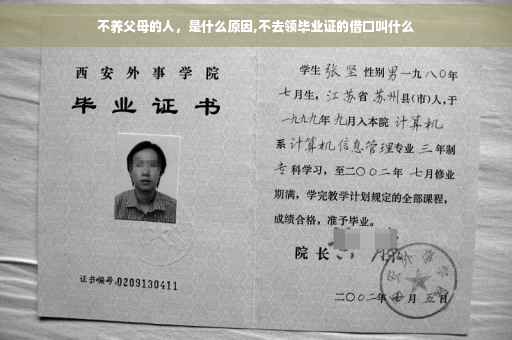 不养父母的人，是什么原因,不去领毕业证的借口叫什么
西安外事学院
毕业证书
证书编号:0209130411
学生 张坚 性别 男 一九八〇年
七月生，江苏省苏州县(市)人,于
一九九九年九月入本院 计算机
系 计算机信息管理专业 三年制
专科学习，至二〇〇二年 七月修业
期满，学完教学计划规定的全部课程，
成绩合格，准予毕业。
院长
二〇〇二年 七月 五日